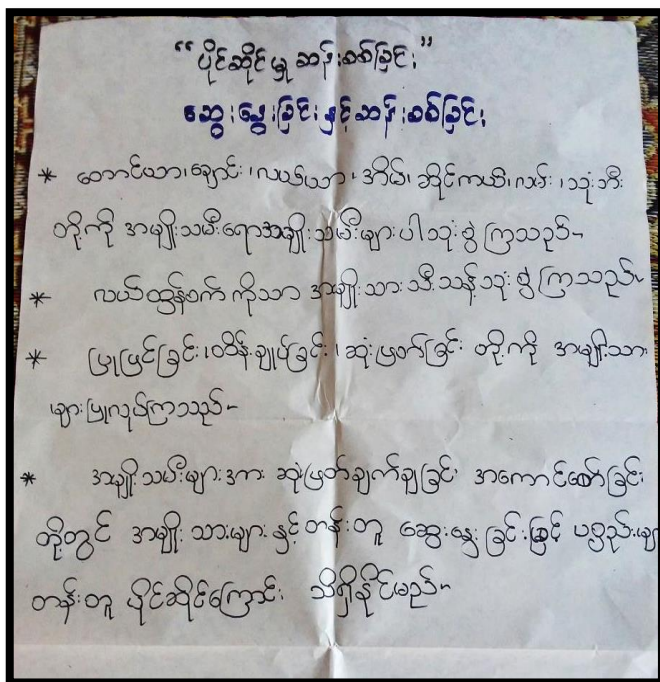 “ပိုင်ဆိုင်မှု ဆန်းစစ်ခြင်း”
ဆွေးနွေးခြင်းနှင့်ဆန်းစစ်ခြင်း
* တောင်ယာ၊ချောင်း၊လယ်ယာ၊အိမ်၊ဆိုင်ကယ်၊လမ်း၊သုံးဘီး
တို့ကို အမျိုးသမီးရောအမျိုးသမီးများပါသုံးစွဲကြသည်။
* လယ်ထွန်စက်ကိုသာ အမျိုးသားသီးသန့်သုံးစွဲကြသည်။
* ပြုပြင်ခြင်း၊ထိန်းချုပ်ခြင်း၊ဆုံးဖြတ်ခြင်း တို့ကို အမျိုးသား
များပြုလုပ်ကြသည်။
* အမျိုးသမီးများအား ဆုံးဖြတ်ချက်ချခြင်း အကောင်ထော်ခြင်း
တို့တွင် အမျိုးသားများနှင့်တန်းတူ ဆွေးနွေးခြင်းဖြင့် ပစ္စည်းမျ
တန်းတူ ပိုင်ဆိုင်ကြောင်း သိရှိနိုင်မည်။